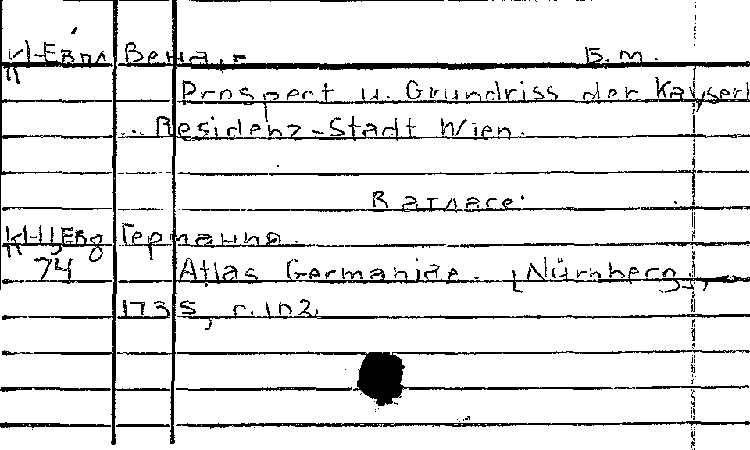 Вена,- Б.м.
Prospect u. Grundriss der Kayserl
Residenz-Stadt Wien.
В атласе:
Германия.
74 Atlas Germaniae. [Nürnberg],
1735, л.102.